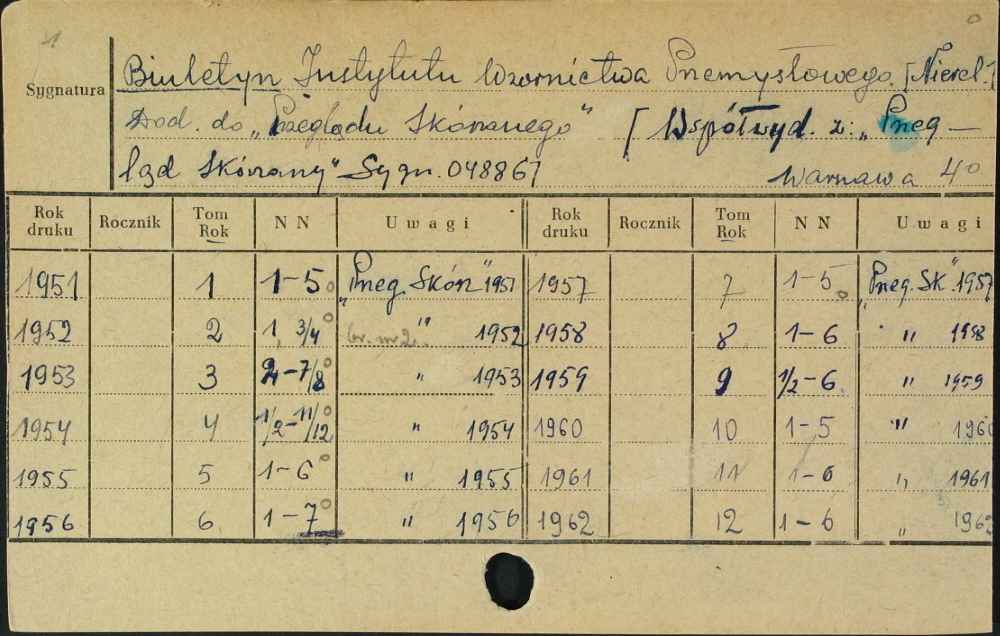 1
Sygnatura
Biuletyn Instytutu Wzornictwa Przemysłowego. [Nierel.]
Dod. do „Przeglądu Skórzanego” [Współwyd. z: „Przeg-
ląd Skórzany” Sygn. 048861
Warszawa 4°
Rok druku Rocznik Tom Rok NN Uwagi Rok druku Rocznik Tom Rok NN Uwagi
1951 1 1-5° „Przeg. Skórz” 1951 1957 7 1-5° „Przeg. Sk”. 1957
1952 2 1, 3/4° br. nr 2. " 1952 1958 8 1-6 " 1958
1953 3 2-7/8° " 1953 1959 9 1/2-6. " 1959
1954 4 1/2-11/12° " 1954 1960 10 1-5 " 1960
1955 5 1-6° " 1955 1961 11 1-6 " 1961
1956 6. 1-7° " 1956 1962 12 1-6 " 1962